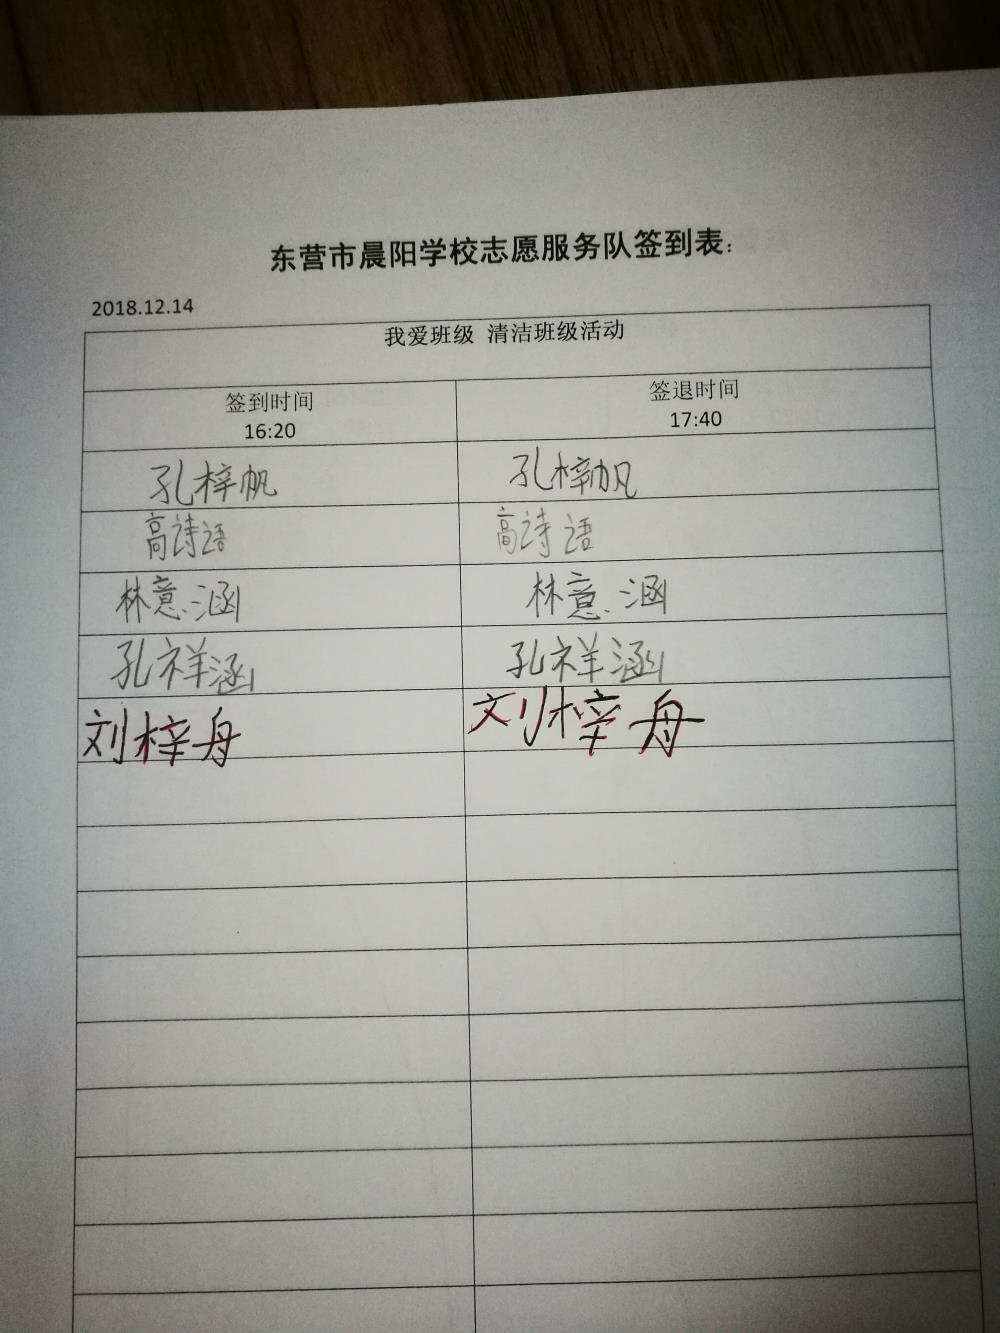 东营市晨阳学校志愿服务队签到表：
2018.12.14
我爱班级 清洁班级活动
签到时间 签退时间
16:20 17:40
孔梓帆 孔梓帆
高诗语 高诗语
林意涵 林意涵
孔祥涵 孔祥涵
刘梓舟 刘梓舟